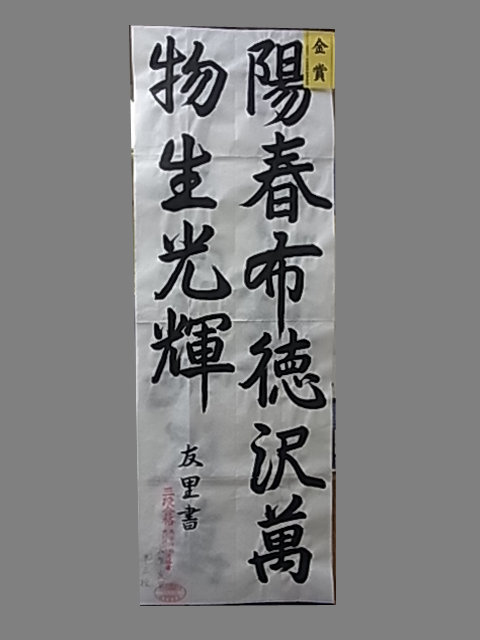 陽春布徳沢萬
物生光輝
友里書
金賞